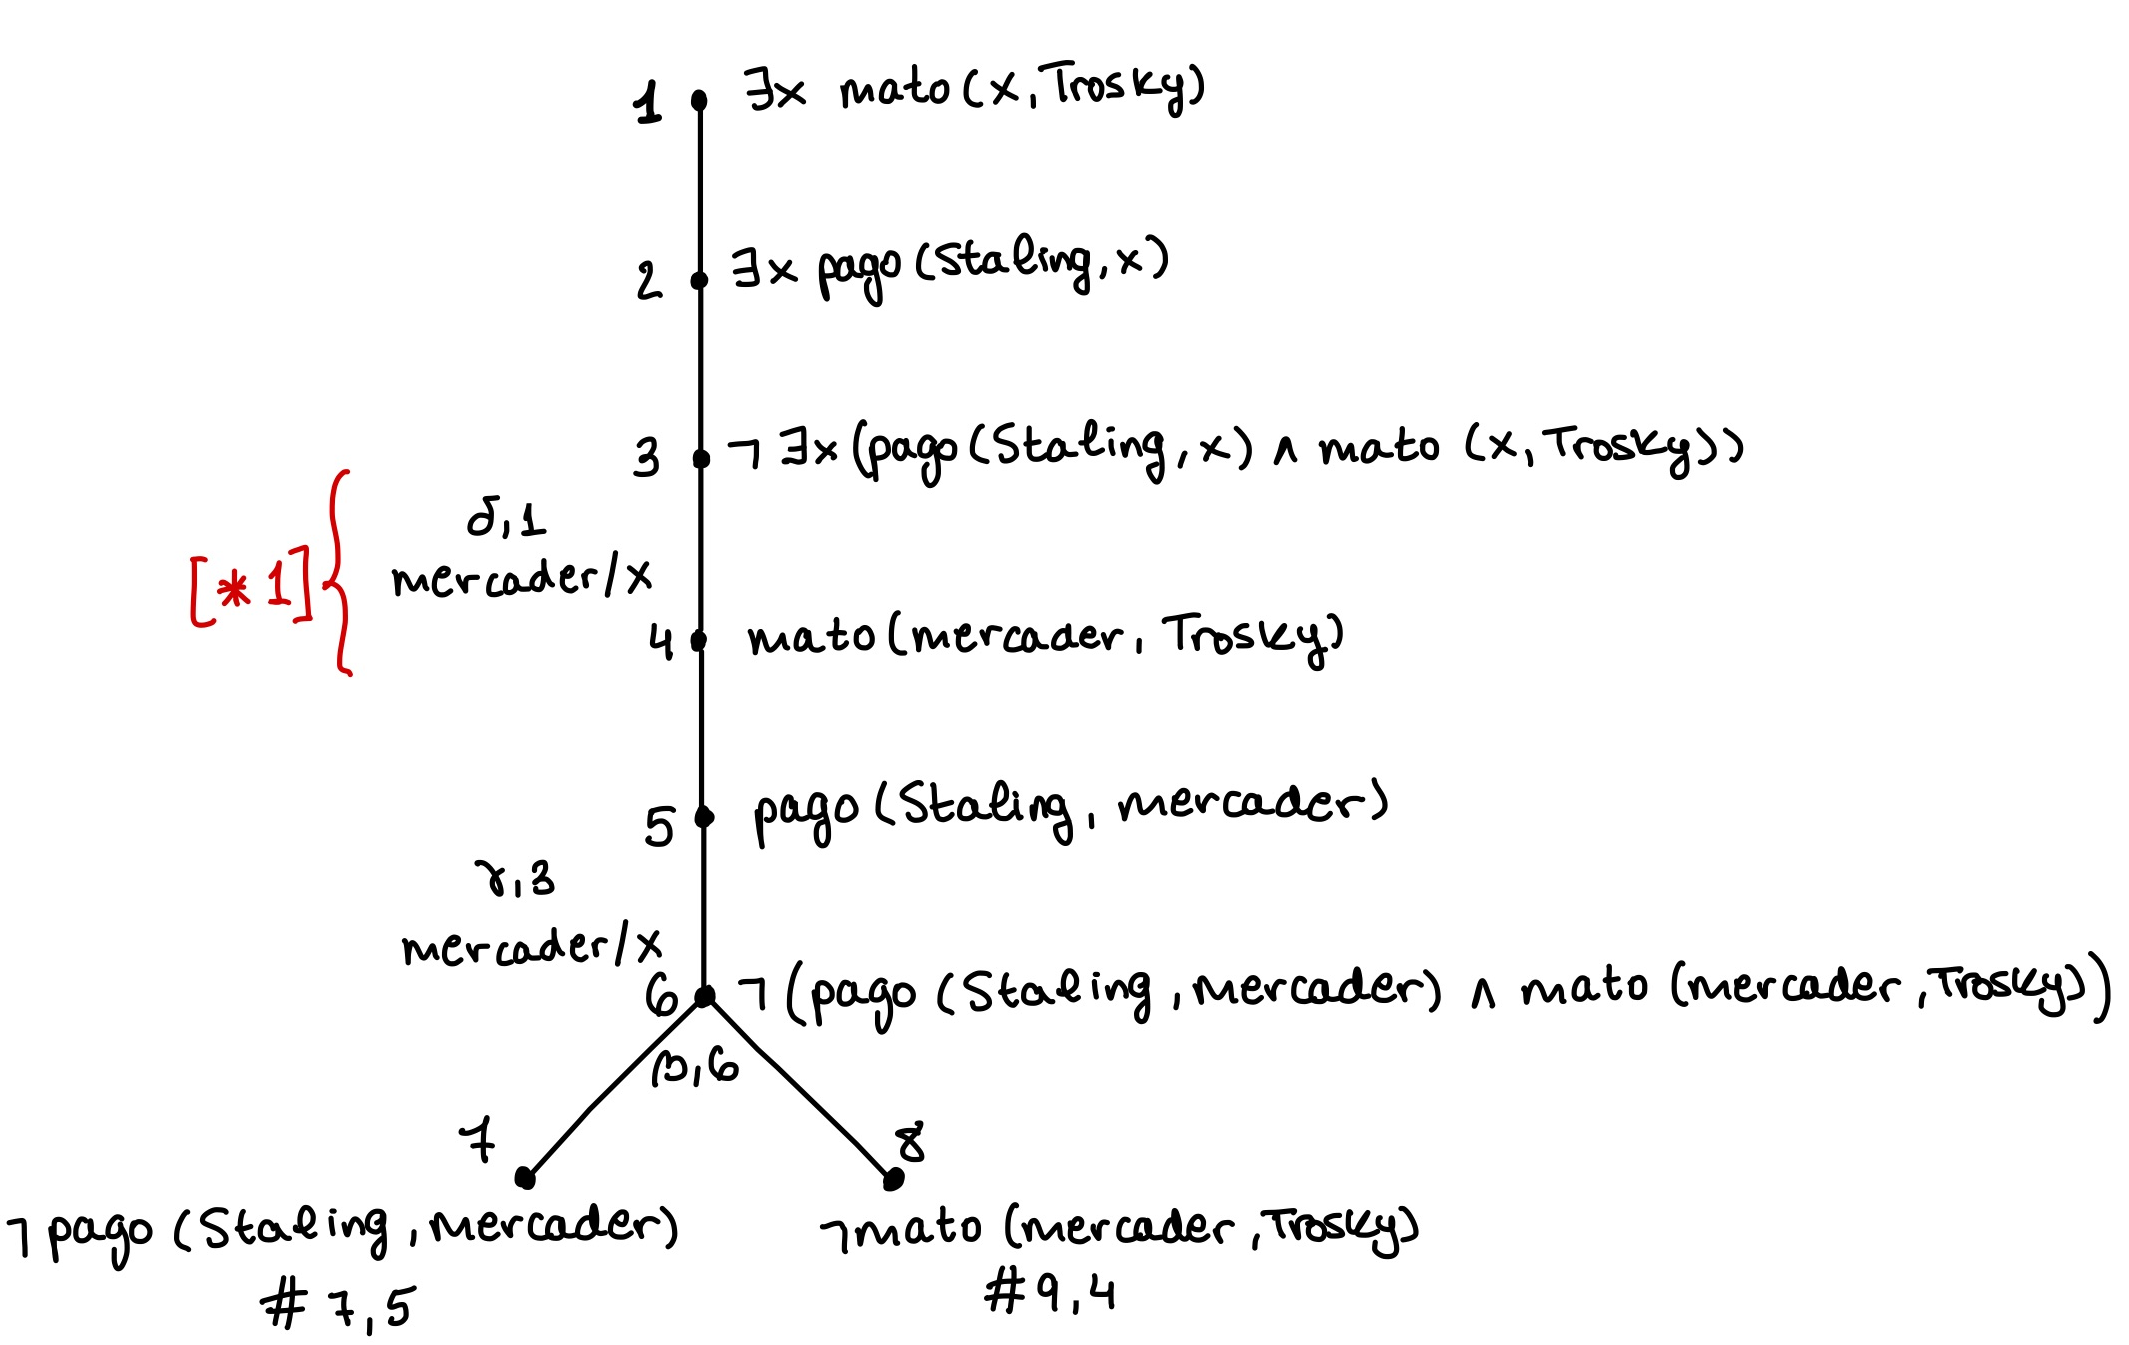 1 ∃x mato(x,Trosky)
2 ∃x pago(Staling,x)
3 ¬∃x(pago(Staling,x) ∧ mato (x,Trosky))
[*1] {
δ,1
mercader/x
4 mato(mercader, Trosky)
5 pago(Staling, mercader)
γ,3
mercader/x
6 ¬(pago (Staling,mercader) ∧ mato (mercader,Trosky))
β,6
7 8
¬pago (Staling,mercader) ¬mato (mercader,Trosky)
# 7,5 #9,4